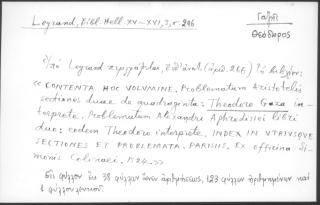 Legrand, Bibl. Hell. XV–XVI, 3, σ. 296
Γαζῆς
Θεόδωρος
Ὑπὸ Legrand περιγράφεται, (ἀριθ. 266) τὸ βιβλίον:
«CONTENTA HOC VOLVMINE. Problematum Aristotelis
sectiones duae de quadraginta: Theodoro Gaza in-
terprete. Problematum Alexandri Aphrodisiei libri
duo: eodem Theodoro interprete. INDEX IN VTRIVSQVE
SECTIONES ET PROBLEMATA. PARISIIS, Ex officina Si-
monis Colinaei, 1524.»
Εἰς φύλλον 38 φύλλων ἄνευ ἀριθμήσεως, 123 φύλλων ἀριθμημένων καὶ
1 φύλλου λευκοῦ.